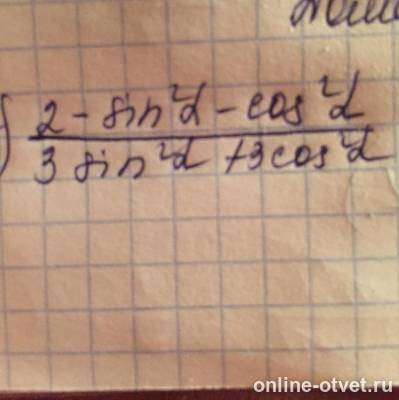 2 - sin²α - cos²α
3 sin²α + 3cos²α
online-otvet.ru